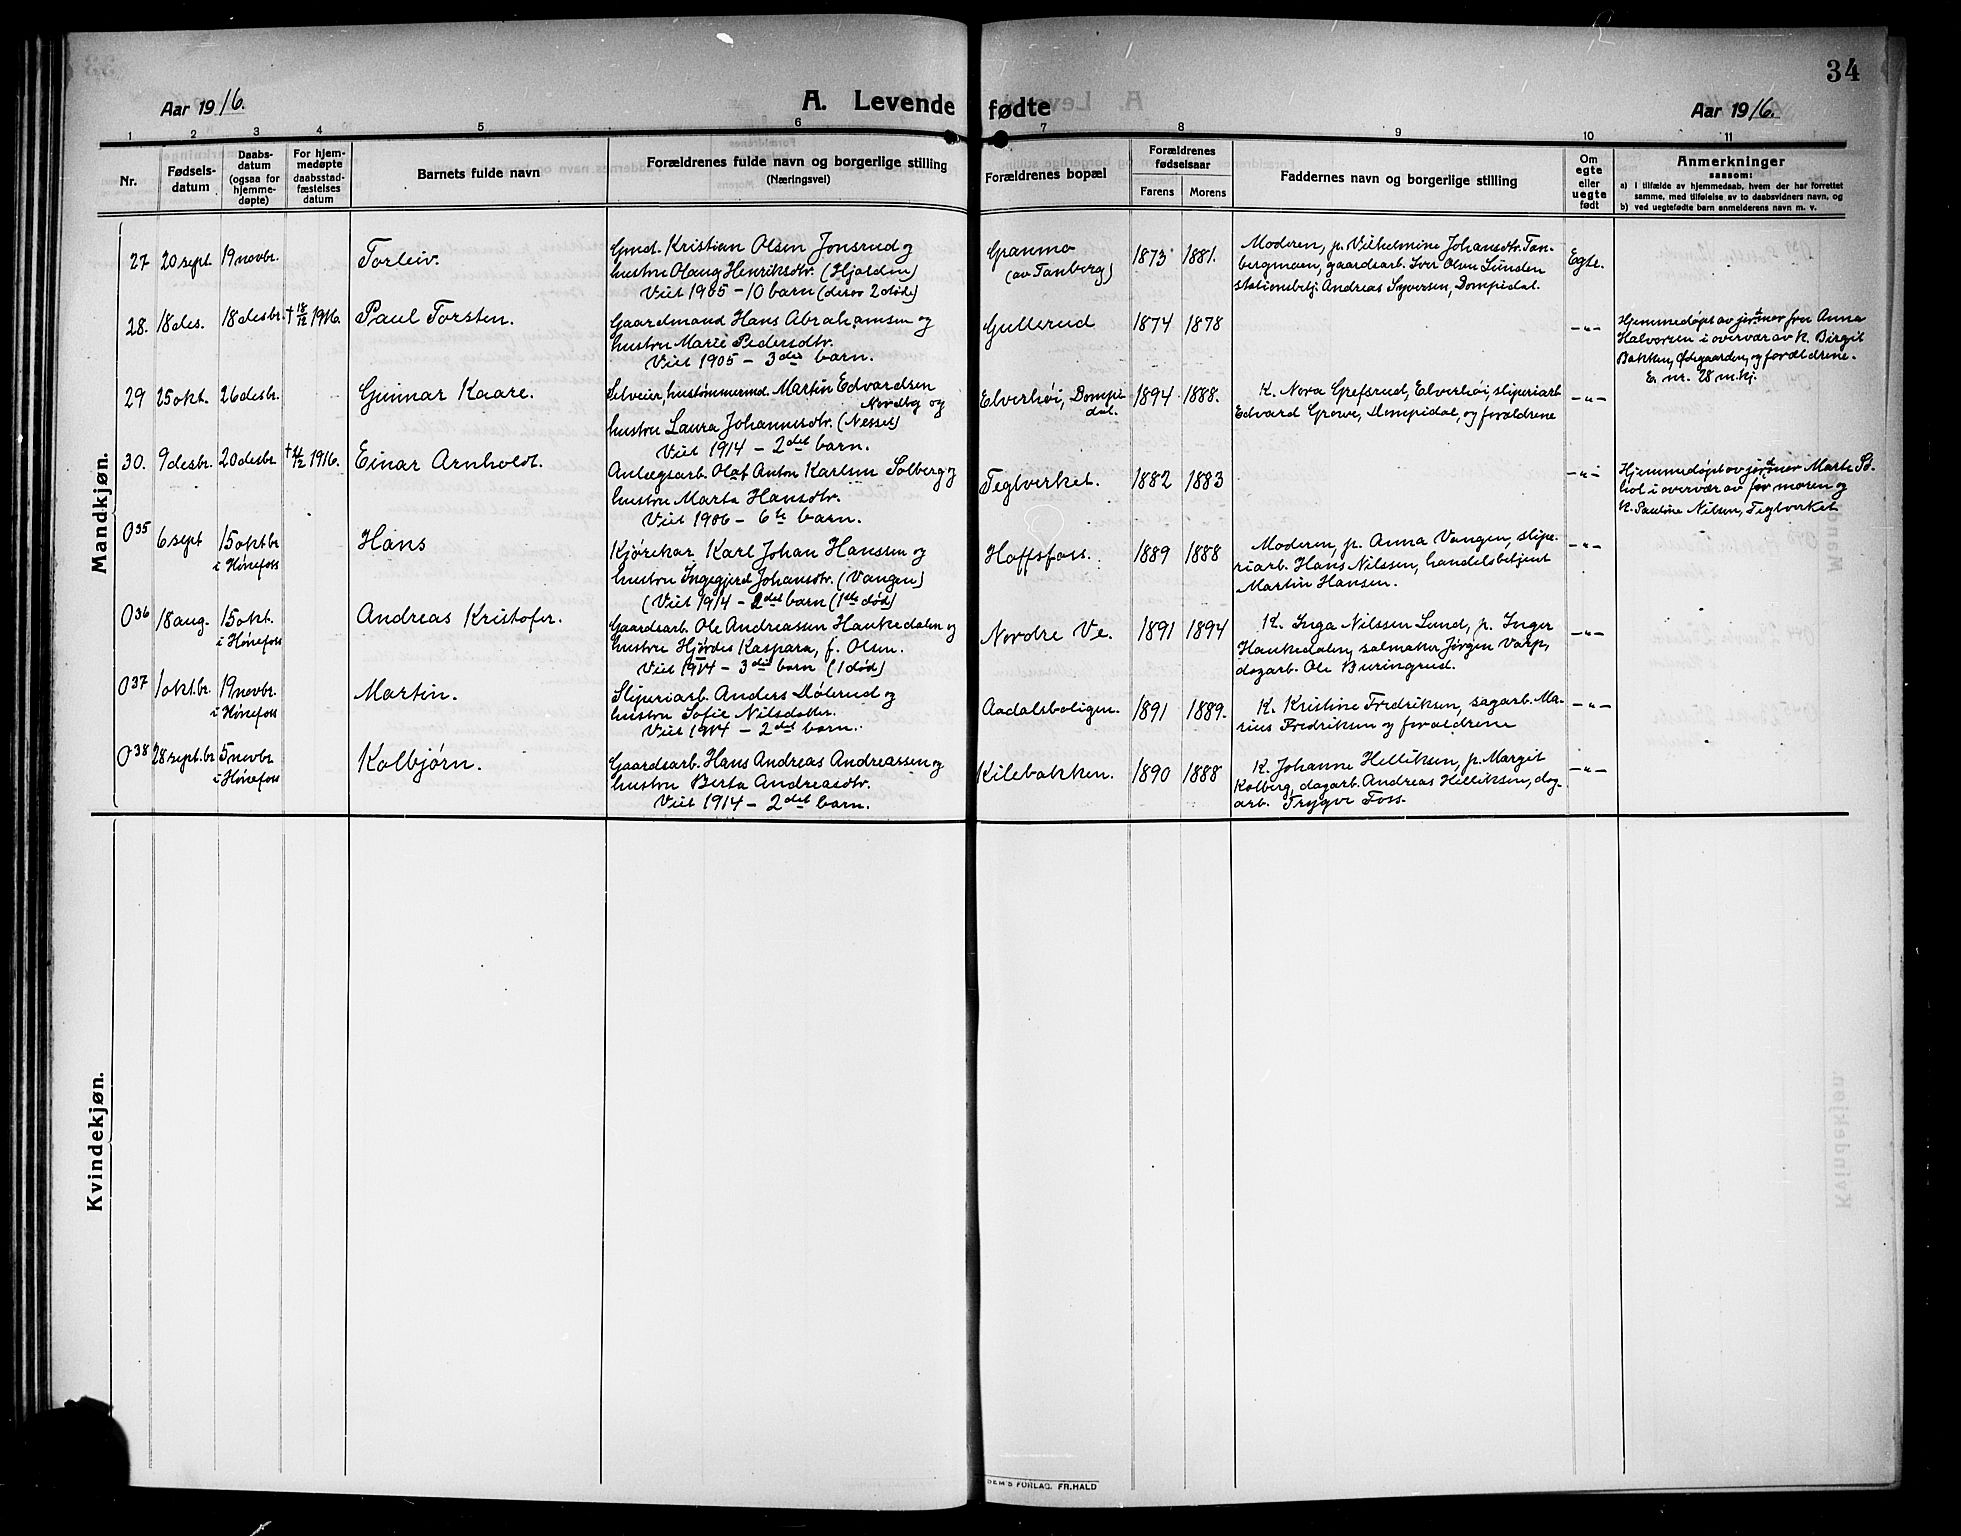 34
Aar 1916. A. Levende fødte Aar 1916.
1 2 3 4 5 6 7 8 9 10 11
Nr. Fødsels-datum Daabs-datum (ogsaa for hjemme-døpte) For hjem-medøpte daabsstad-fæstelses datum Barnets fulde navn Forældrenes fulde navn og borgerlige stilling (Næringsvei) Forældrenes bopæl Forældrenes fødselsaar Farens Morens Faddernes navn og borgerlige stilling Om egte eller uegte født Anmerkninger
saasom:
a) i tilfælde av hjemmedaab, hvem der har forrettet
samme, med tilføielse av to daabsvidners navn, og
b) ved uegtefødte barn anmelderens navn m. v.
Mandkjøn.
27 20 sept. 19 novbr. Torleiv. Gmd. Kristian Olsen Jonsrud og
hustru Olaug Henriksdtr. (Hjorden)
Viet 1905 - 10 barn (derav 2 døde)
Granmo
(av Tanberg)
1873 1881.
Moderen, p. Vilhelmine Johansdtr. Tan-
bergmoen, gaardsarb. Iver Olsen Lunden
stationsbetj. Andreas Syversen, Dompidal.
Egte.
28. 18 des. 18 desbr. † 18/12 1916. Paul Torsten. Gaardmand Hans Abrahamsen og
hustru Marie Pedersdtr.
Viet 1905 - 3die barn.
Gullerud
1874 1878
-"-
Hjemmedøpt av jordmor fru Anna
Halvorsen i overvær av k. Birgit
Bakken, Ødegaarden, og forældrene.
E. nr. 28 m.kj.
29 25 okt. 26 desbr. Gunnar Kaare. Selveier, hustømmermd. Martin Edvardsen
Nordby og
hustru Laura Johannesdtr. (Nesset)
Viet 1914 - 2det barn.
Elverhøi, Dompi-
dal.
1894 1888.
K. Nora Grefsrud, Elverhøi, sliperiarb.
Edvard Growe, Dompidal, og forældrene
-"-
30. 9 desbr. 20 desbr. † 1916. Einar Arnholdt. Anlægsarb. Olaf Anton Karlsen Solberg og
hustru Marta Hansdtr.
Viet 1906 - 6te barn.
Teglverket.
1882 1883
-"-
Hjemmedøpt av jordmor Marte
i overvær av moren og
k. Pauline Nilsen, Teglverket
O35 6 sept 15 oktbr
i Hønefoss
Hans Kjørekar Karl Johan Hanssen og
hustru Ingegjerd Johansdtr. (Vangen)
(Viet 1914 - 2det barn (1ste død)
Hoffsfoss.
1889 1888
Moderen, p. Anna Vangen, slipe-
riarb. Hans Nilssen, handelsbetjent
Martin Hansen.
-"-
O36 18 aug. 15 okt.
i Hønefoss
Andreas Kristofer. Gaardsarb. Ole Andreassen Haukedalen og
hustru Hjørdis Kaspara, f. Olsen.
Viet 1914 - 3die barn (1 død)
Nordre Ve.
1891 1894
K. Inga Nilssen Lund, p. Inger
Haukedalen, salmaker Jørgen Varp,
dagarb. Ole Buringrud.
-"-
O37 1 oktbr. 19 novbr.
i Hønefoss
Martin. Sliperiarb. Anders Dølerud og
hustru Sofie Nilsdatter.
Viet 1914 - 2det barn.
Aadalsboligen.
1891 1889.
K. Kristine Fredriksen, sagarb. Ma-
rius Fredriksen og forældrene
-"-
O38 28 sept.br 5 novbr
i Hønefoss
Kolbjørn. Gaardsarb. Hans Andreas Andreassen og
hustru Berta Andreasdtr.
Viet 1914 - 2det barn.
Kilebakken.
1890 1888
K. Johanne Helliksen, p. Margit
Kolberg, dagarb. Andreas Helliksen, dag-
arb. Trygve Foss.
-"-
Kvindekjøn.
DEM'S FORLAG. FR.HALD